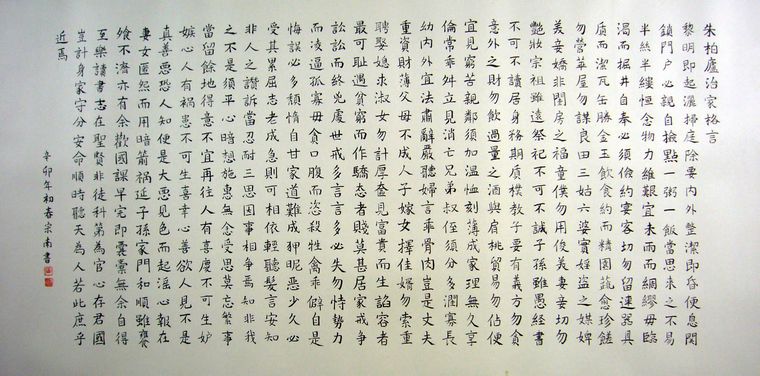 朱柏廬治家格言
黎明即起灑掃庭除要內外整潔即昏便息關
鎖門戶必親自檢點一粥一飯當思來之不易
半絲半縷恒念物力維艱宜未雨而綢繆毋臨
渴而掘井自奉必須儉約宴客切勿留連器具
質而潔瓦缶勝金玉飲食約而精園蔬愈珍饈
勿營華屋勿謀良田三姑六婆實婬盜之媒婢
美妾嬌非閨房之福童僕勿用俊美妻妾切勿
豔妝宗祖雖遠祭祀不可不誠子孫雖愚經書
不可不讀居身務期質樸教子要有義方勿貪
意外之財勿飲過量之酒與肩挑貿易勿佔便
宜見窮苦親鄰須加溫恤刻薄成家理無久享
倫常乖舛立見消亡兄弟叔侄須分多潤寡長
幼內外宜法肅辭嚴聽婦言乖骨肉豈是丈夫
重資財薄父母不成人子嫁女擇佳婿勿索重
聘娶媳求淑女勿計厚奩見富貴而生諂容者
最可恥遇貧窮而作驕態者賤莫甚居家戒爭
訟訟而終兇處世戒多言言多必失勿恃勢力
而凌逼孤寡毋貪口腹而恣殺牲禽乖僻自是
悔誤必多頹惰自甘家道難成狎昵惡少久必
受其累屈志老成急則可相依輕聽髮言安知
非人之譖訴當忍耐三思因事相爭焉知非我
之不是須平心暗想施惠無念受恩莫忘繁事
當留餘地得意不宜再往人有喜慶不可生妒
嫉心人有禍患不可生喜幸心善欲人見不是
真善惡恐人知便是大惡見色而起淫心報在
妻女匿怨而用暗箭禍延子孫家門和順雖饔
飧不濟亦有余歡國課早完即囊橐無余自得
至樂讀書志在聖賢非徒科第為官心存君國
豈計身家守分安命順時聽天為人若此庶乎
近焉
辛卯年初春宗南書